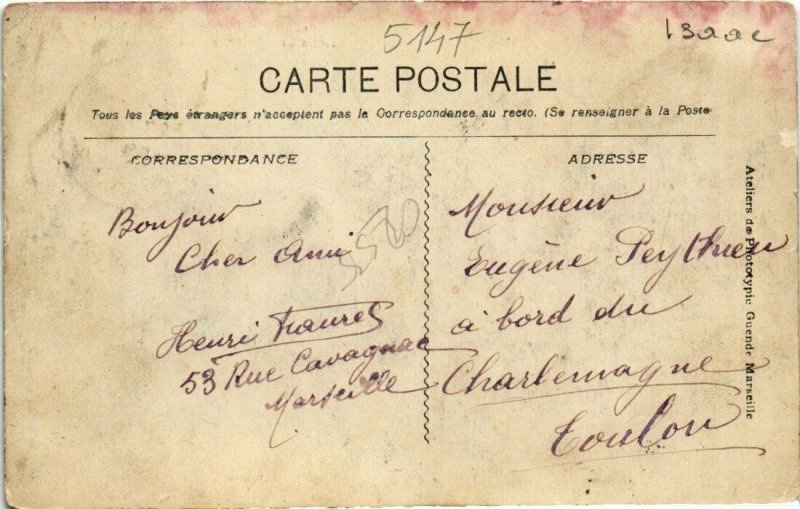 5147
CARTE POSTALE
Tous les Pays étrangers n'acceptent pas la Correspondance au recto. (Se renseigner à la Poste
CORRESPONDANCE
Bonjour
Cher Ami
Henri
53 Rue Cavagnac
Marseille
ADRESSE
Monsieur
Eugène Peythieu
à bord du
Charlemagne
Toulon
Ateliers de Phototypie Guende Marseille